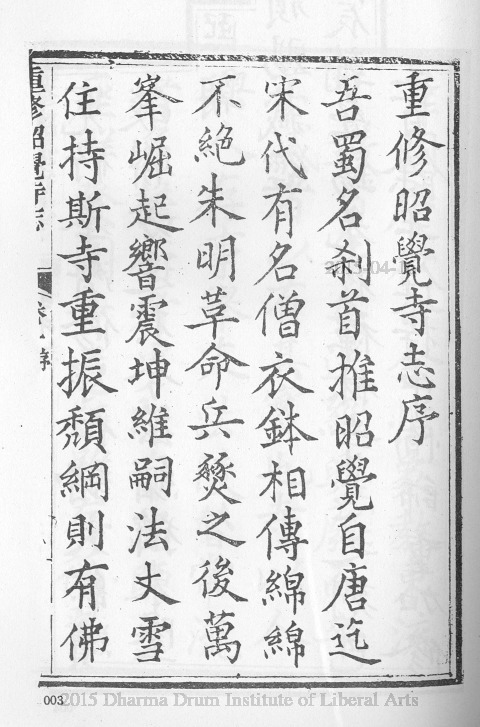 重修昭覺寺志序
吾蜀名剎首推昭覺自唐迄
宋代有名僧衣鉢相傳綿綿
不絶朱明革命兵燹之後萬
峯崛起響震坤維嗣法丈雪
住持斯寺重振頹綱則有佛
重修昭覺寺志
卷一序
003
2015 Dharma Drum Institute of Liberal Arts